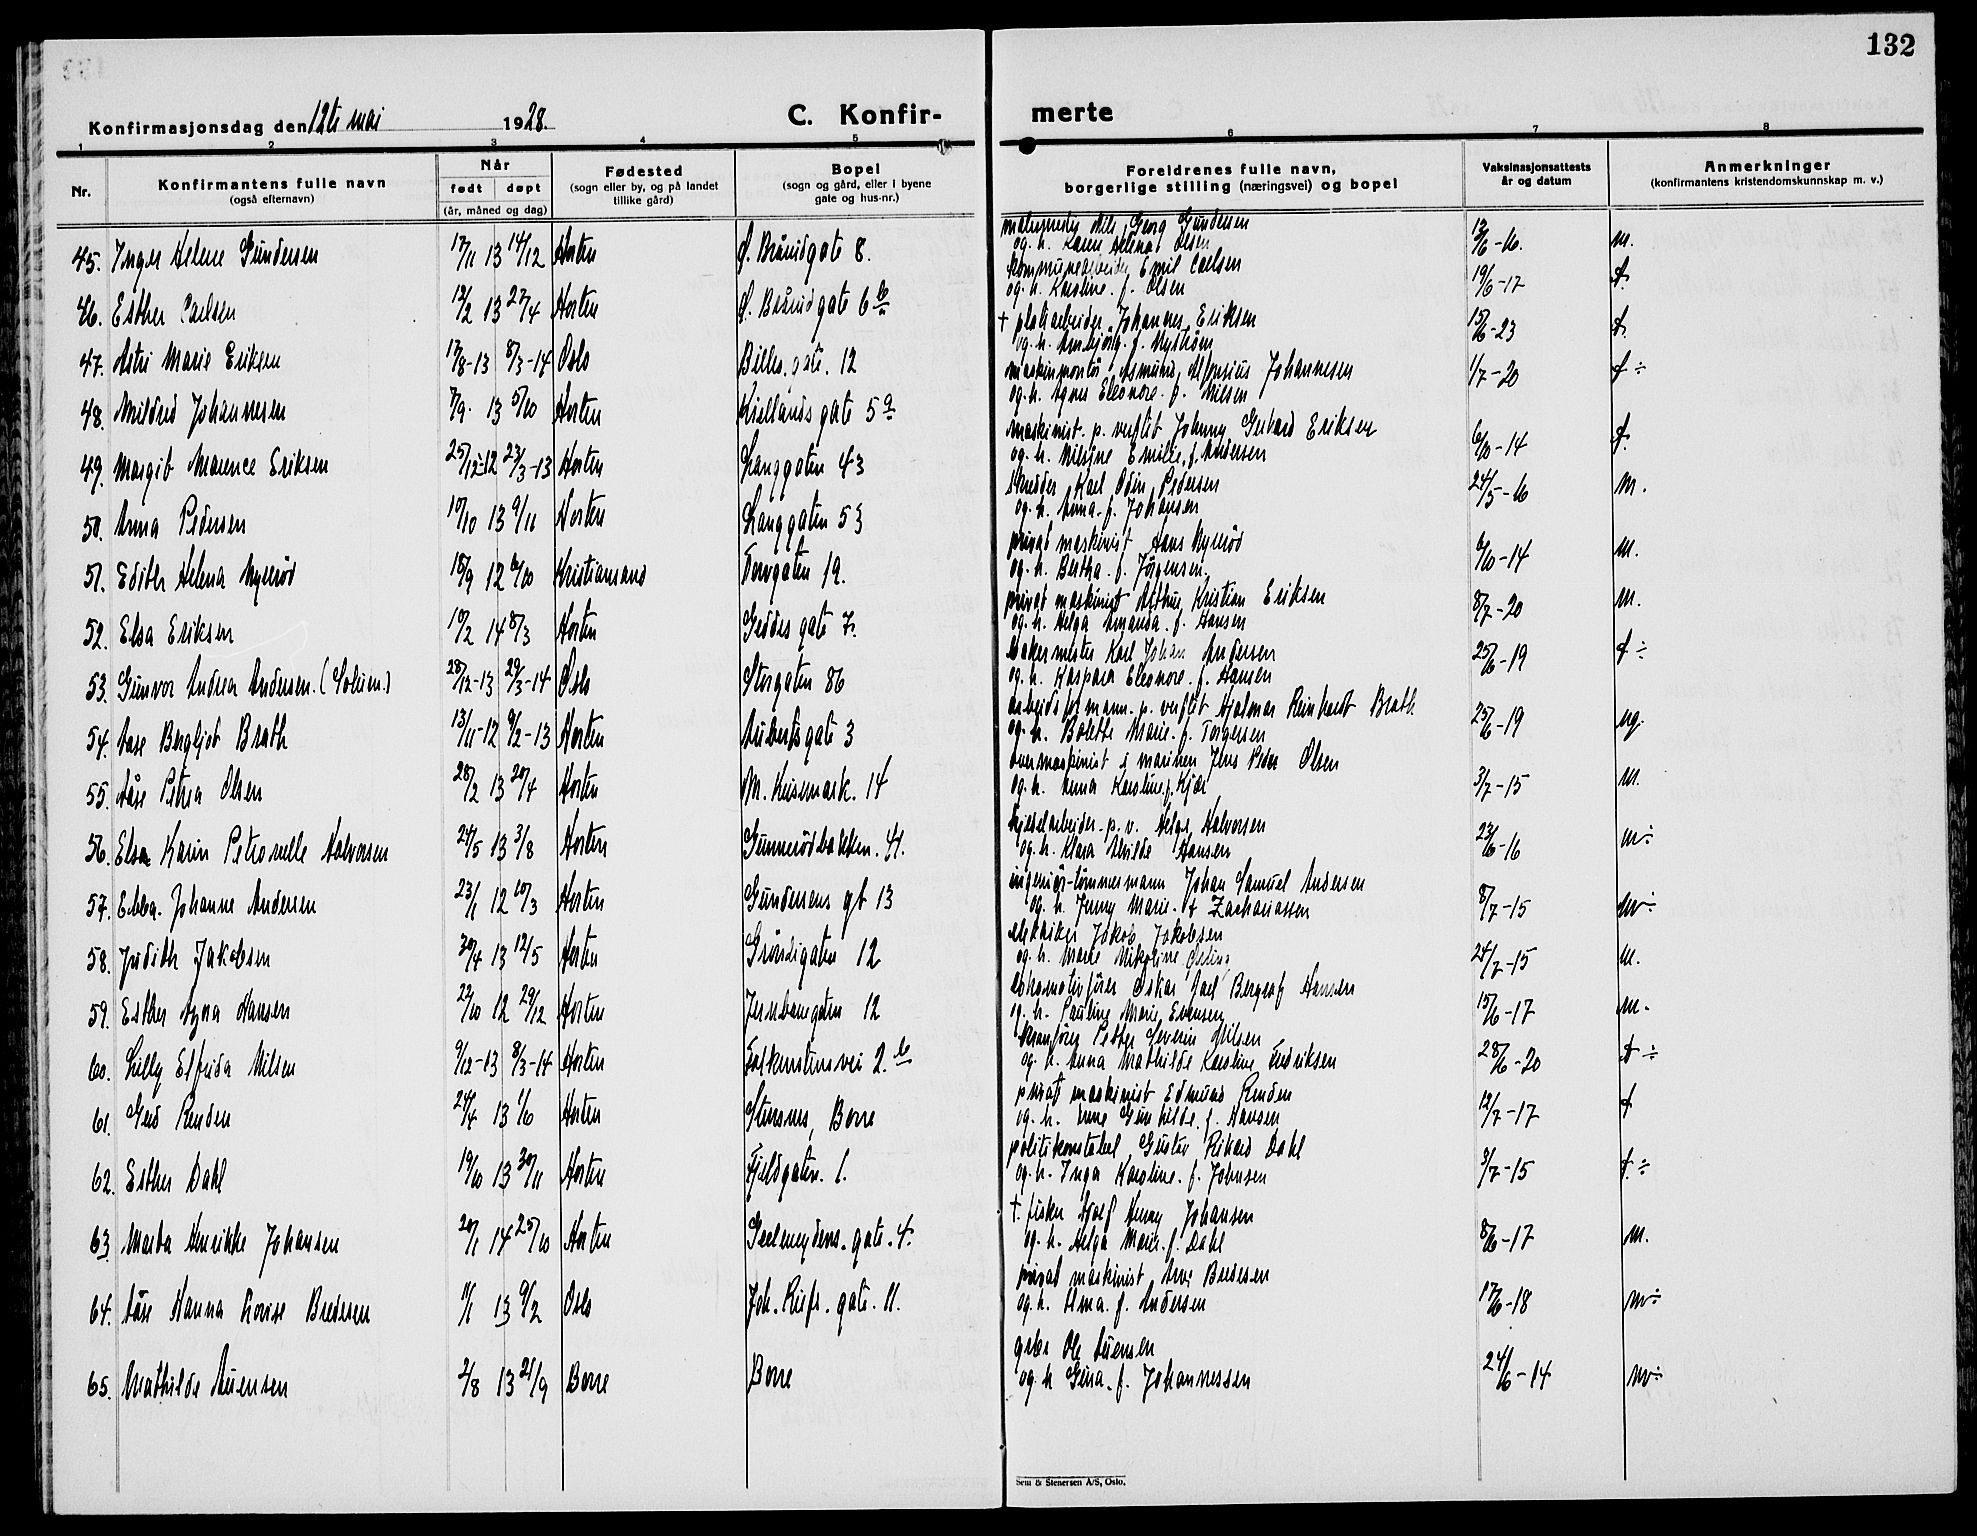 132
Konfirmasjonsdag den 12te mai 1928.
C. Konfir-
merte
1 2 3 4 5 6 7 8
Nr.
Konfirmantens fulle navn
(også efternavn)
Når
født døpt
(år, måned og dag)
Fødested
(sogn eller by, og på landet
tillike gård)
Bopel
(sogn og gård, eller i byene
gate og hus-nr.)
Foreldrenes fulle navn,
borgerlige stilling (næringsvei) og bopel
Vaksinasjonsattests
år og datum
Anmerkninger
(konfirmantens kristendomskunnskap m. v.)
45. Inger Helene Gundersen 17/11 13 14/12 Horten 8. Nils Georg Gundersen
og h. Karen Helena Olsen -16. m.
46. Esther Carlsen 12/2 13 27/4 Horten 6 b Emil Carlsen
og h. Karoline f. Olsen 19/6-17
47. Astri Marie Eriksen 17/8-13 8/3-14 Oslo Billes gate. 12 † platearbeider Johannes Eriksen
og h. f. Nyström 15/6-23
48. Mildrid Johannesen 7/9. 13 5/10 Horten Kiellands gate 5 a maskinmontör Asmund Johannesen
og h. Agnes Eleonore f. Nilsen 1/7-20
49. Margit Marence Eriksen 25/12-12 23/3-13 Horten Langgaten 43 maskinist p. verftet Johnny Gerhard Eriksen
og h. Nilsine Emilie f. Andersen -14
50. Anna Pedersen 10/10 13 9/11 Horten Langgaten 53 Skredder Karl Odin Pedersen
og h. Anna f. Johansen 24/5-16 m.
51. Edith Helena Nyerröd 18/9 12 Kristiansand Torvgaten 19. privat maskinist Hans Nyerröd
og h. Bertha f. Jörgensen 6/10-14 m.
52. Elsa Eriksen 10/2 14 8/3 Horten Geddes gate 7. privat maskinist Arthur Kristian Eriksen
og h. Helga Amanda f. Hansen 8/7-20 m.
53. Gunvor Andrea Andersen. (Solum) 28/12-13 29/3-14 Oslo Storgaten 86 bakermester Karl Johan Andersen
og h. Kaspara Eleonore f. Hansen 25/6-19
54. Aase Bergljot Brath 13/11-12 9/2-13 Horten Auberts gate 3 arbeidsformann p. verftet Hjalmar Reinhardt Brath
og h. Bolette Marie f. Torgersen 25/6-19 mg.
55. Aase Petrea Olsen 28/2 13 20/4 Horten 14 overmaskinist i marinen Jens Peder Olsen
og h. Anna Karoline f. Kjær 3/7-15 m.
56. Elsa Karin Petronelle Halvorsen 24/5 13 3/8 Horten Gunnerödbakken. 41. kjelearbeider p. v. Helge Halvorsen
og h. Klara Hansen 23/6-16
57. Ebba Johanne Andersen 23/1 12 10/3 Horten Gundersens gt 13 ingeniör-tömmermann Johan Samuel Andersen
og h. Jenny Marie f Zachariassen 8/7-15
58. Judith Jakobsen 30/4 13 12/5 Horten Gröndigaten 12 Jakob Jakobsen
og h. Marie Mikoline 24/7-15 m.
59. Esther Agna Hansen 22/10 12 29/12 Horten Jernbanegaten 12 lokomotivförer Oskar Joel Hansen
og h. Pauline Marie Evensen 15/6-17 m.
60. Lilly Elfrida Nilsen 9/12-13 8/3-14 Horten Falkenstensvei 2. b Kranförer Petter Severin Nilsen
og h. Anna Mathilde Karoline Fredriksen 28/6-20
61. Gerd Renden 24/4 13 1/6 Horten Stensnes, Borre privat maskinist Edmund Renden
og h. Anne Gunhilde f. Hansen 12/7-17
62. Esther Dahl 19/10 13 30/11 Horten Fjeldgaten. 1. politikonstabel Gustav Rikard Dahl
og h. Inga Karoline f. Johnsen 3/7-15
63. Marta Henrikke Johansen 20/1 14 25/10 Horten Geelmeydens gate. 4. † fisker Henry Johansen
og h. Helga Marie f. Dahl 8/6-17 m.
64. Aase Hanna Lovise Bredesen 11/1 13 9/2 Oslo gate. 11. privat maskinist Arne Bredesen
og h. Alma f. Andersen 17/6-18
65. Mathilde Auensen 2/8 13 21/9 Borre Borre Ole Auensen
og h Gina f. Johannessen 24/6-14
Sem & Stenersen A/S, Oslo.